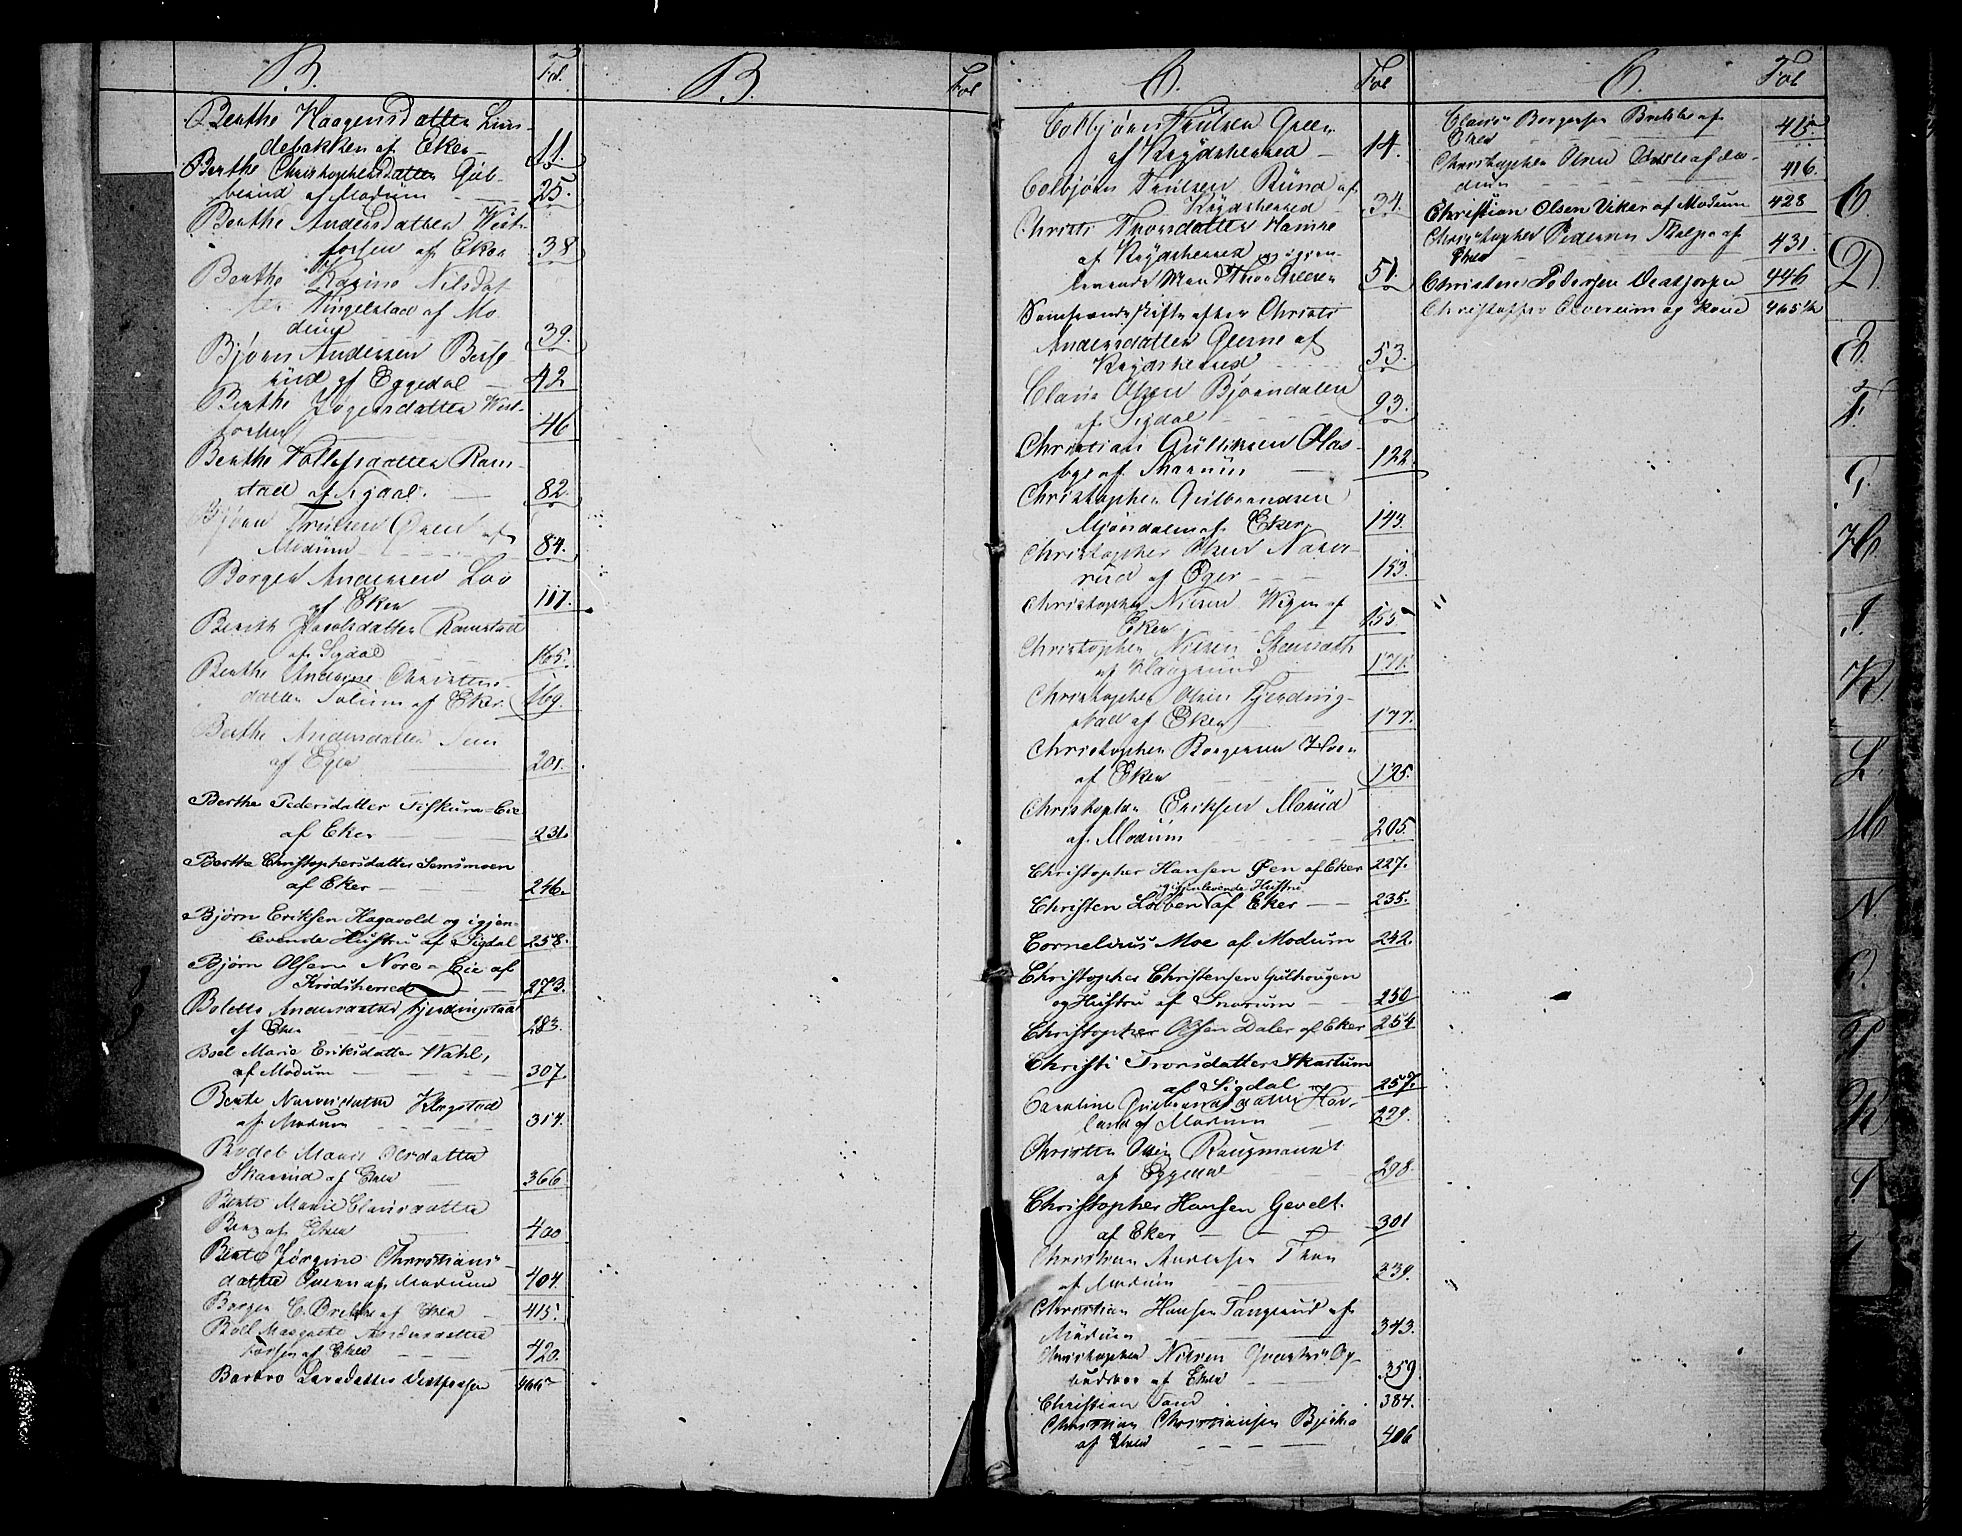 B.
Fol.
Berthe Haagensdatter Lin-
debakken af Eker 11.
Berthe Christophersdatter Gub-
berud af Modum 25.
Berthe Andersdatter West-
fossen af Eker 38
Berthe Karine Nilsdat
ter Tingelstad af Mo
dum 39.
Bjørn Andersen Berse
rud af Eggedal 42
Berthe Jørgensdatter West-
fossen 46
Berthe Tollefsdatter Ram-
stad af Sigdal. 82.
Bjørn Trulsen Øren af
Modum 84.
Borger Andersen Loe
af Eker 117.
Berith Jacobsdatter Ramstad
af Sigdal 165.
Berthe Andrine Christens-
datter Solum af Eker 169.
Berthe Andersdatter Sem
af Eger 201.
Berthe Pedersdatter Fiskum-Eie
af Eker 231.
Berthe Christophersdatter Semsmoen
af Eker 246.
Bjørn Eriksen Hagavold og igjen-
levende Hustru af Sigdal 258.
Bjørn Olsen Nore-Eie af
Krødsherred 273.
Bolette Andersdatter Fjerdingstad
af Eker 283.
Boel Marie Eriksdatter Wahl,
af Modum 307.
Berte Narvesdatter Klopstad
af Modum 314.
Bodel Marie Olsdatter
Skarud af Eker 366
Berte Marie Clausdatter
Berg af Eker 400
Berte Jørgine Christians-
datter Øveren af Modum 404
Borger C. Brekke af Eker 415.
Boll Margrete Andersdatter
Fossen af Eker 420.
Barbro Larsdatter Vestfossen 466
B.
Fol
C.
Fol
Colbjørn Trulsen Green
af Krydsherred 14.
Colbjørn Trulsen Rund af
Krydsherred 34.
Christi Thorsdatter Hamre
af Krydsherred og igjen-
levende Mand Thor Gulsen 51.
Samfrændeskifte efter Christi
Andersdatter Glesne af
Krydsherred 53.
Claus Olsen Bjørndalen
af Sigdal 93.
Christian Gulliksen Aas-
bye af Snarum 122.
Christopher Gulbrandsen
Mjøndalen af Eker 143.
Christopher Olsen Narve-
rud af Eger 153.
Christopher Nilsen Wegen af
Eker 155
Christopher Nielsen
af 171.
Christopher Olsen Fjerding-
stad af Eker 177.
Christopher Borgersen Hoen
af Eker 195.
Christopher Eriksen Morud
af Modum 205.
Christopher Hansen Øen af Eker 227.
og igjenlevende Hustru
Christen Lobben af Eker 235.
Cornelius Moe af Modum 242.
Christopher Christensen Gulhougen
og Hustru af Snarum 250
Christopher Olsen Daler af Eker 254
Christi Tronsdatter Skartum
af Sigdal 257.
Caroline Gulbrandsdatter Hov-
land af Modum 279.
Christen Olsen
af Eggedal 298.
Christopher Hansen Gevelt
af Eker 301
Christian Andersen Thon
af Modum 339.
Christian Hansen Tangerud af
Modum 343.
Christopher Nilsen
af Eker 359
Christian Sand 384.
Christian Christiansen Bjerke
af Eker 406
C.
Fol
Claus Borgersen Brekke af
Eker 415.
Christopher Olsen af Mo-
dum 416.
Christian Olsen Viker af Modum 428
Christopher Pedersen Stolpe af
Eker 431.
Christen Pedersen 446
Christoffer Overeum og Kone 465
C.
D
E.
F.
G.
H
I.
K
L.
M
N.
O.
P
R
S
T